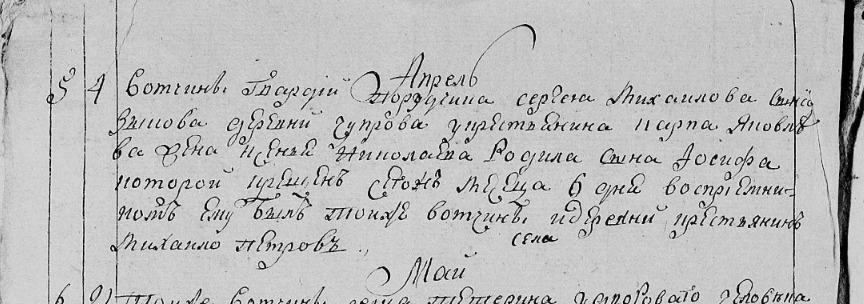 Апрель
5 4 Вотчины Гвардии Порутчика Сергея Михаилова сына
деревни чупрова у крестьянина Карпа Яковле
ва жена Ксенья Николаева Родила сына Иосифа
которой крещенъ сегожъ месеца 6 дня восприемни-
комъ ему былъ тоиже вотчины и деревни крестьянинъ
Михаило Петровъ.
села
Май
6 Тоиже Вотчины села человека